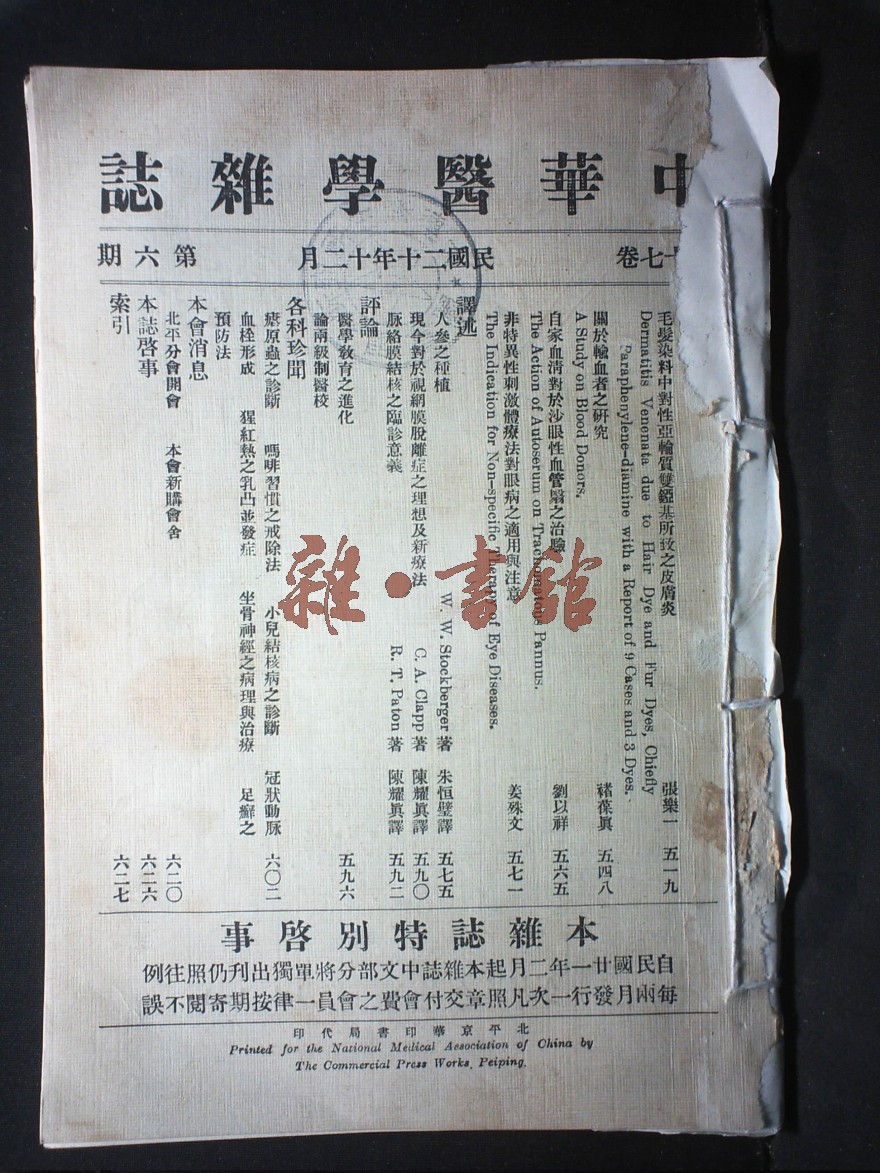 中華醫學雜誌
十七卷 民國二十年十二月 第六期
毛髮染料中對性亞輪質雙錏基所致之皮膚炎 張樂一 五一九
Dermatitis Venenata due to Hair Dye and Fur Dyes, Chiefly
Paraphenylene-diamine with a Report of 9 Cases and 3 Dyes.
關於輸血者之研究 褚葆眞 五四八
A Study on Blood Donors.
自家血清對於沙眼性血管翳之治驗 劉以祥 五六五
The Action of Autoserum on Trachomatous Pannus.
非特異性刺激體療法對眼病之適用與注意 姜殊文 五七一
The Indication for Non-specific Therapy of Eye Diseases.
譯述
人參之種植 W. W. Stockberger 著 朱恒璧譯 五七五
現今對於視網膜脫離症之理想及新療法 C. A. Clapp 著 陳耀眞譯 五九〇
脈絡膜結核之臨診意義 R. T. Paton 著 陳耀眞譯 五九二
評論
醫學敎育之進化
論兩級制醫校 五九六
各科珍聞
瘧原蟲之診斷 嗎啡習慣之戒除法 小兒結核病之診斷 冠狀動脉 六〇二
血栓形成 猩紅熱之乳凸並發症 坐骨神經之病理與治療 足癬之
預防法
本會消息
北平分會開會 本會新購會舍 六二〇
本誌啓事 六二六
索引 六二七
本雜誌特別啓事
自民國廿一年二月起本雜誌中文部分將單獨出刋仍照往例
每兩月發行一次凡照章交付會費之會員一律按期寄閱不誤
北平京華印書局代印
Printed for the National Medical Association of China by
The Commercial Press Works, Peiping.
雜·書館